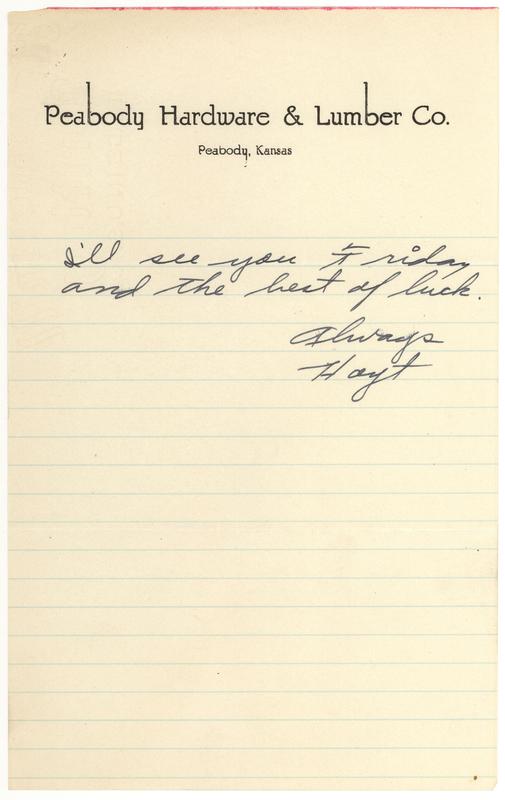 Peabody Hardware & Lumber Co.
Peabody, Kansas
I'll see you Friday
and the best of luck.
Always
Hoyt